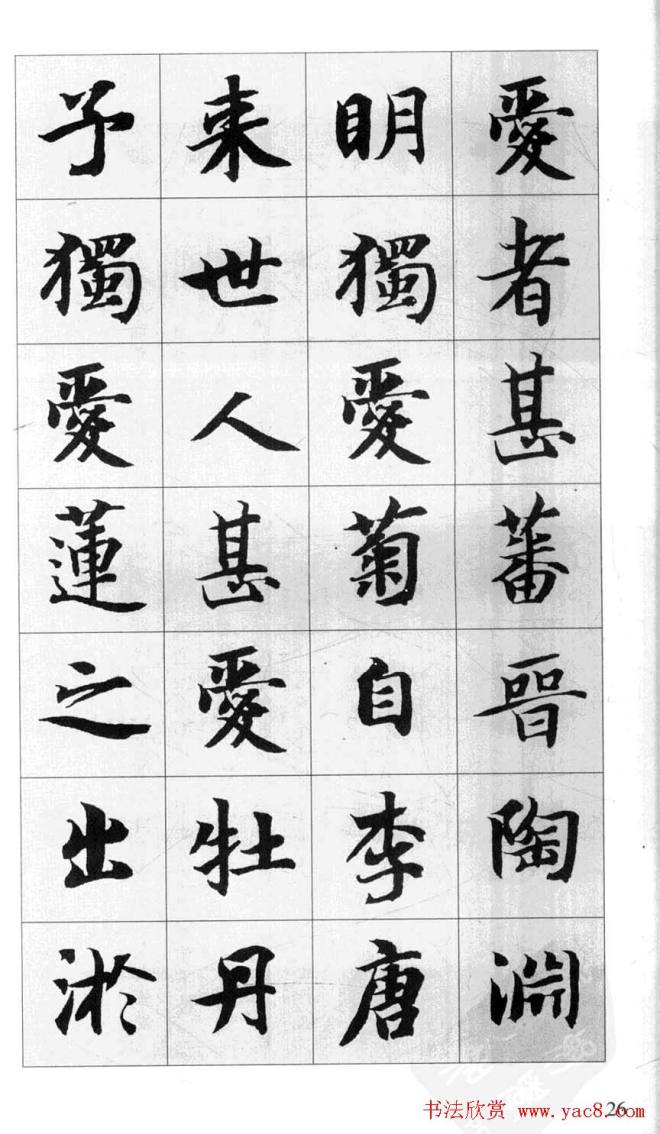 愛者甚蕃晉陶淵
明獨愛菊自李唐
来世人甚愛牡丹
予獨愛蓮之出淤
26
书法欣赏 www.yac8.com